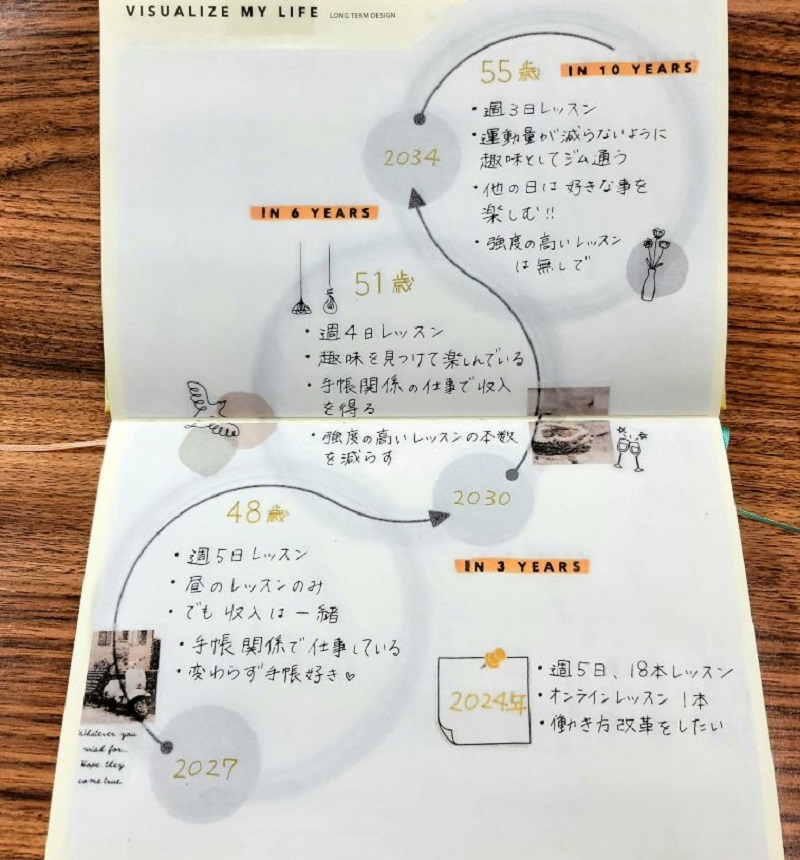 VISUALIZE MY LIFE LONG TERM DESIGN
55歳 IN 10 YEARS
・週3日レッスン
・運動量が減らないように
趣味としてジム通う
・他の日は好きな事を
楽しむ!!
・強度の高いレッスン
は無しで
2034
IN 6 YEARS
51歳
・週4日レッスン
・趣味を見つけて楽しんでいる
・手帳関係の仕事で収入
を得る
・強度の高いレッスンの本数
を減らす
2030
48歳
・週5日レッスン
・昼のレッスンのみ
・でも収入は一緒
・手帳関係で仕事している
・変わらず手帳好き♡
2027
IN 3 YEARS
2024年
・週5日、18本レッスン
・オンラインレッスン 1本
・働き方改革をしたい
Whatever you
wish for.
Hope they
come true.